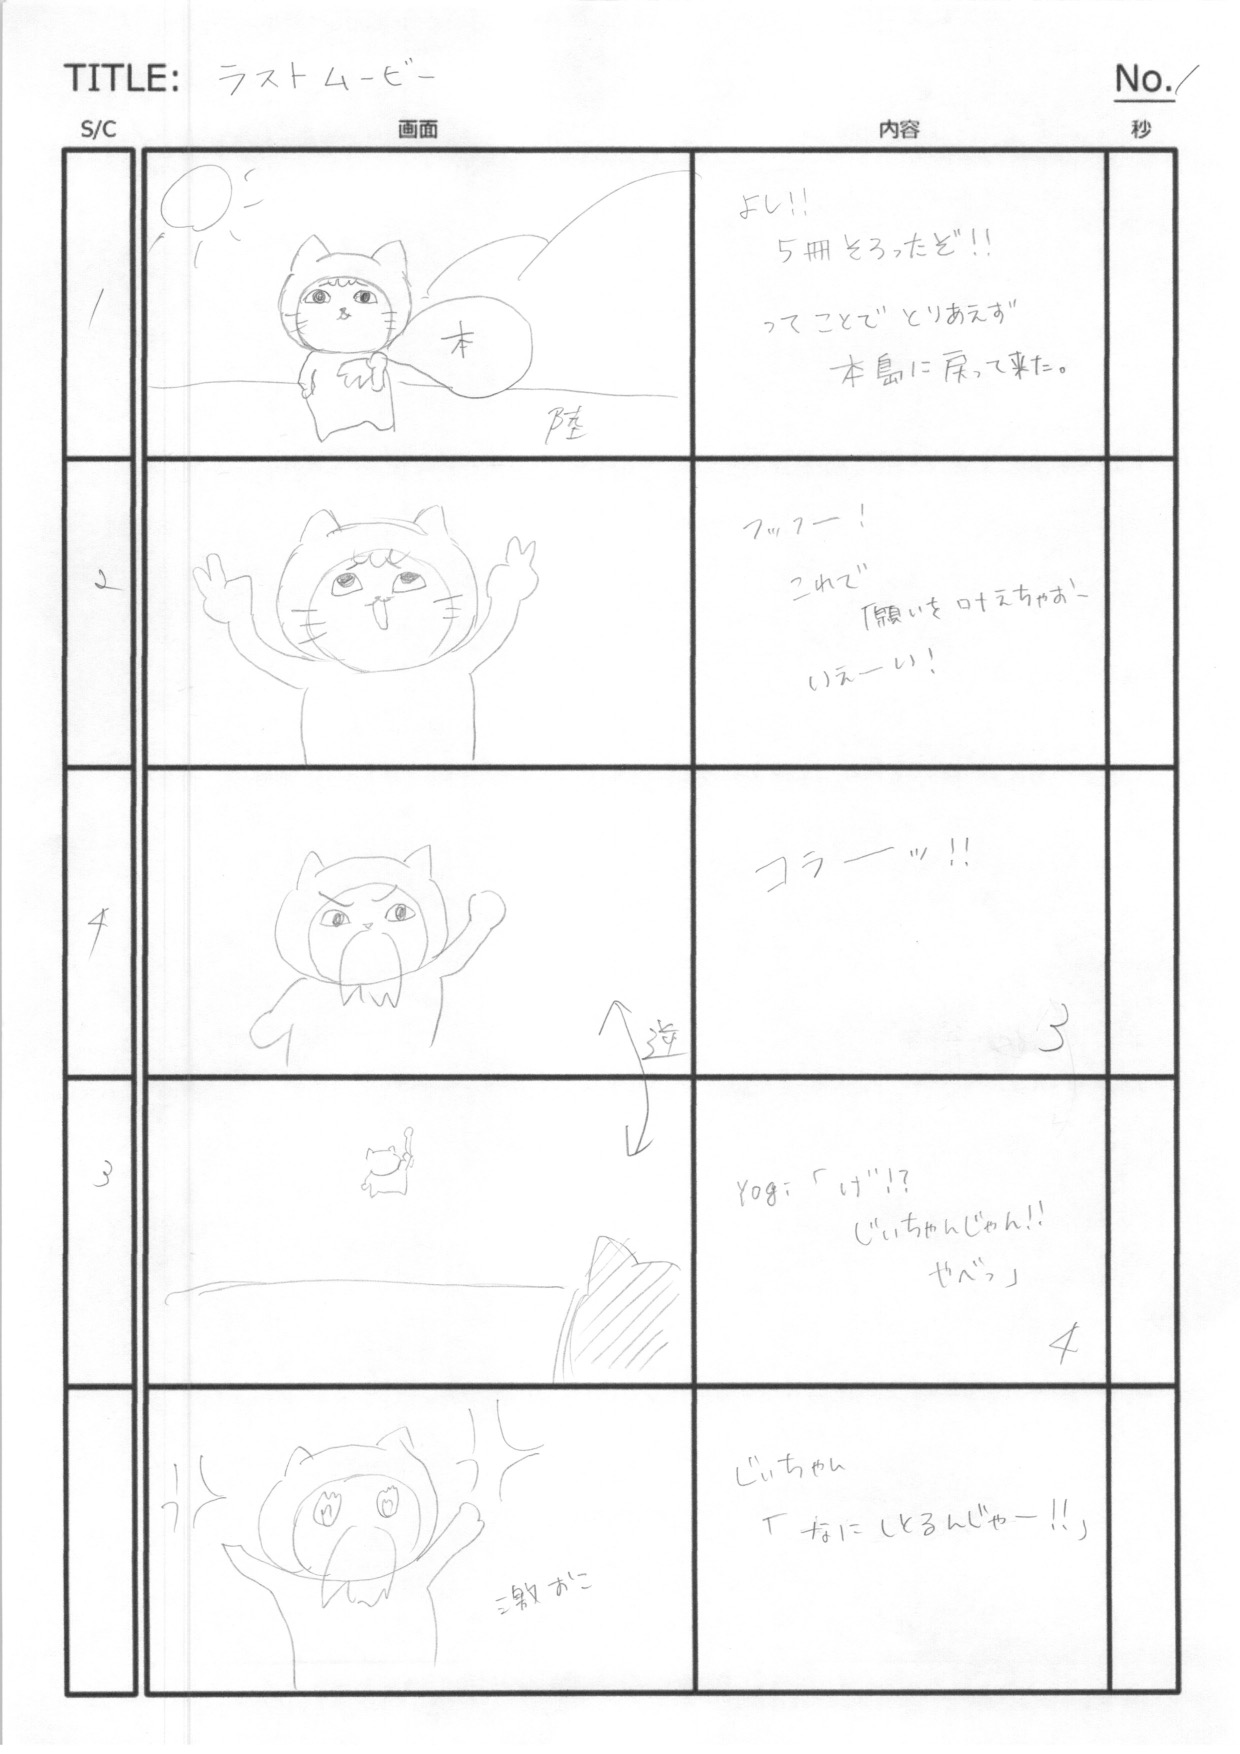 TITLE: ラストムービー
No. 1
S/C 画面 内容 秒
1
本
陸
よし!!
5冊そろったぞ!!
ってことで とりあえず
本島に戻って来た。
2
フッフー!
これで
願いを叶えちゃおー
いえーい!
4
逆
コラーッ!!
3
3
Yogi「げ!?
じいちゃんじゃん!!
やべっ」
4
激おこ
じいちゃん
「なにしとるんじゃー!!」